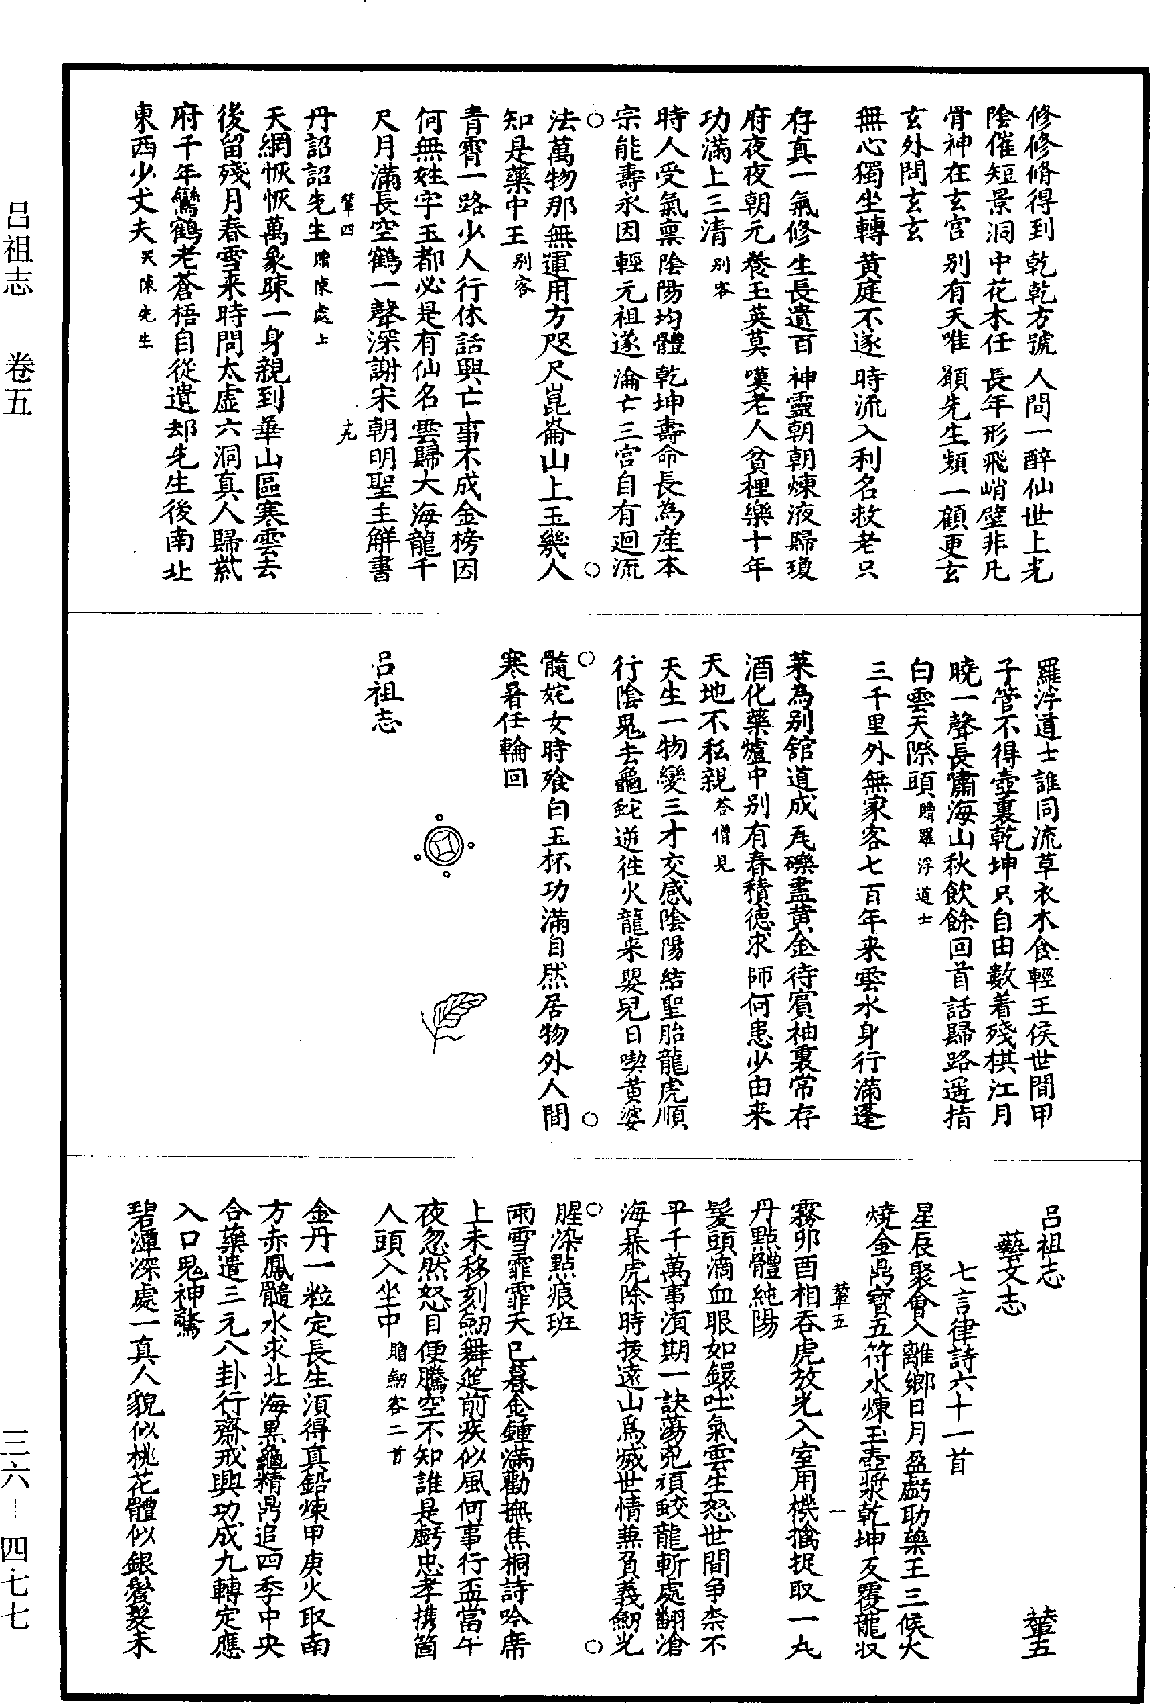 呂祖志　卷五
修修修得到乾乾方號人間一醉仙世上光
陰催短景洞中花木任長年形飛峭壁非凡
骨神在玄宮別有天唯願先生頻一顧更玄
玄外問玄玄
無心獨坐轉黃庭不逐時流入利名救老只
存真一氣修生長遺百神靈朝朝煉液歸瓊
府夜夜朝元養玉英莫嘆老人貧裡樂十年
功滿上三清別客
時人受氣稟陰陽均體乾坤壽命長為產本
宗能壽永因輕元祖遂淪亡三宮自有迴流
法萬物那無運用方咫尺崑崙山上玉幾人
知是藥中王別客
青霄一路少人行休話興亡事不成金榜因
何無姓字玉都必是有仙名雲歸大海龍千
尺月滿長空鶴一聲深謝宋朝明聖主解書
丹詔詔先生贈陳處士
輦四
十九
天網恢恢萬象疎一身親到華山區寒雲去
後留殘月春雪來時問太虛六洞真人歸紫
府千年鸞鶴老蒼梧自從遺却先生後南北
東西少丈夫哭陳先生
羅浮道士誰同流草衣木食輕王侯世間甲
子管不得壺裏乾坤只自由數着殘棋江月
曉一聲長嘯海山秋飲餘回首話歸路遥指
白雲天際頭贈羅浮道士
三千里外無家客七百年來雲水身行滿蓬
萊為別館道成瓦礫盡黃金待賓袖裏常存
酒化藥爐中別有春積德求師何患少由來
天地不私親答僧見
天生一物變三才交感陰陽結聖胎龍虎順
行陰鬼去龜蛇逆往火龍來嬰兒日喫黃婆
髓姹女時飱白玉杯功滿自然居物外人間
寒暑任輪回
呂祖志
呂祖志
輦五
藝文志
七言律詩六十一首
星辰聚會入離鄉日月盈虧助藥王三候火
燒金鼎寶五符水煉玉壺漿乾坤反覆龍收
霧卯酉相吞虎放光入室用機擒捉取一丸
丹點體純陽
輦五
一
髮頭滴血眼如鐶吐氣雲生怒世間爭柰不
平千萬事須期一訣蕩兇頑蛟龍斬處翻滄
海暴虎除時拔遠山為滅世情兼負義劒光
腥染點痕班
雨雪霏霏天已暮金鍾滿勸撫焦桐詩吟席
上未移刻劒舞筵前疾似風何事行盃當午
夜忽然怒目便騰空不知誰是虧忠孝携箇
人頭入坐中贈劒客二首
金丹一粒定長生須得真鉛煉甲庚火取南
方赤鳳髓水求北海黑龜精鼎追四季中央
合藥遣三元八卦行齋戒興功成九轉定應
入口鬼神驚
碧潭深處一真人貌似桃花體似銀鬢髮未
三六―四七七